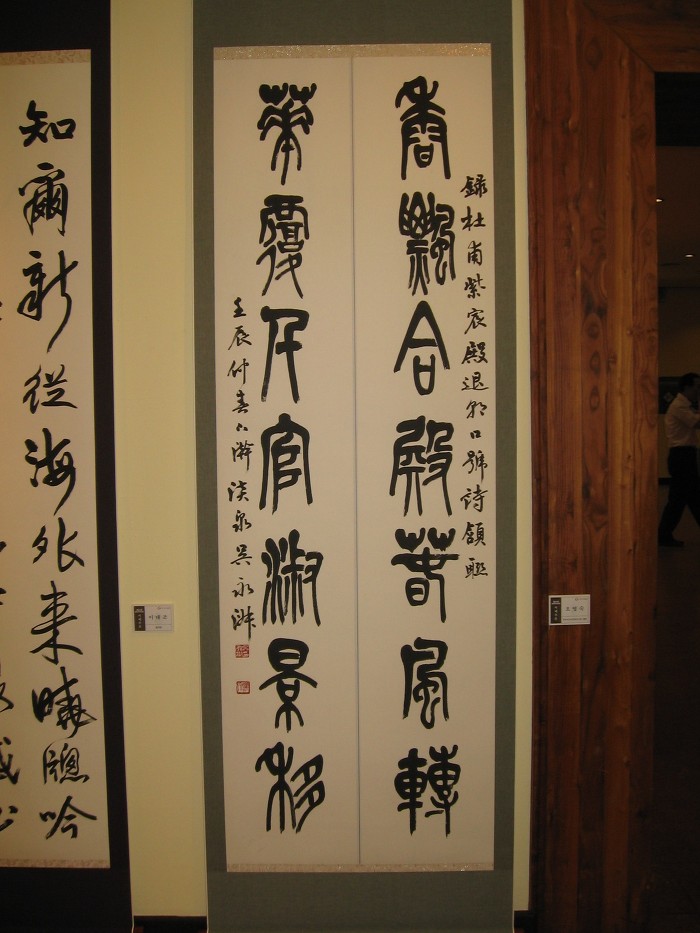 錄杜甫紫宸殿退朝口號詩頷聯
香飄合殿春風轉
華覆千官淑景移
壬辰仲春淡泉吳永
知爾新從海外來窗吟